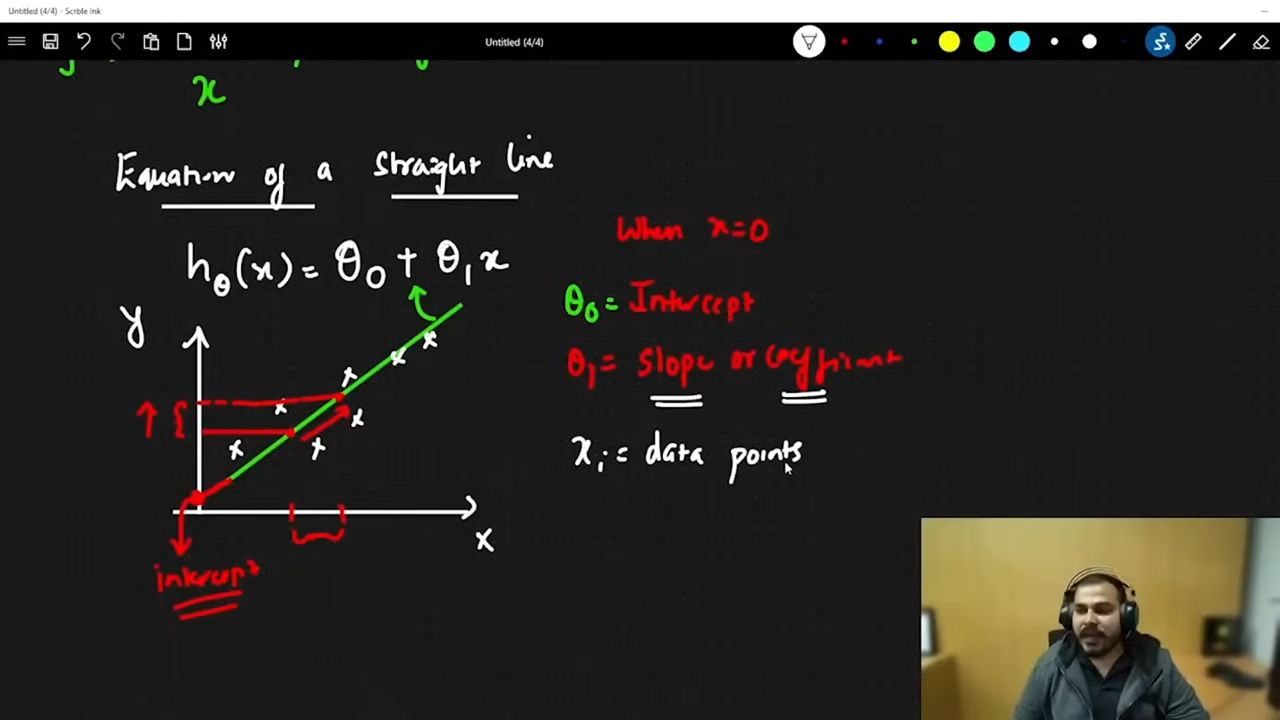 Untitled (4/4) - Scrble Ink
Untitled (4/4)
x
Equation of a straight line
hθ(x) = θ0 + θ1x
When x=0
θ0 = Intercept
θ1 = Slope or coefficient
xi = data points
y
x
intercept